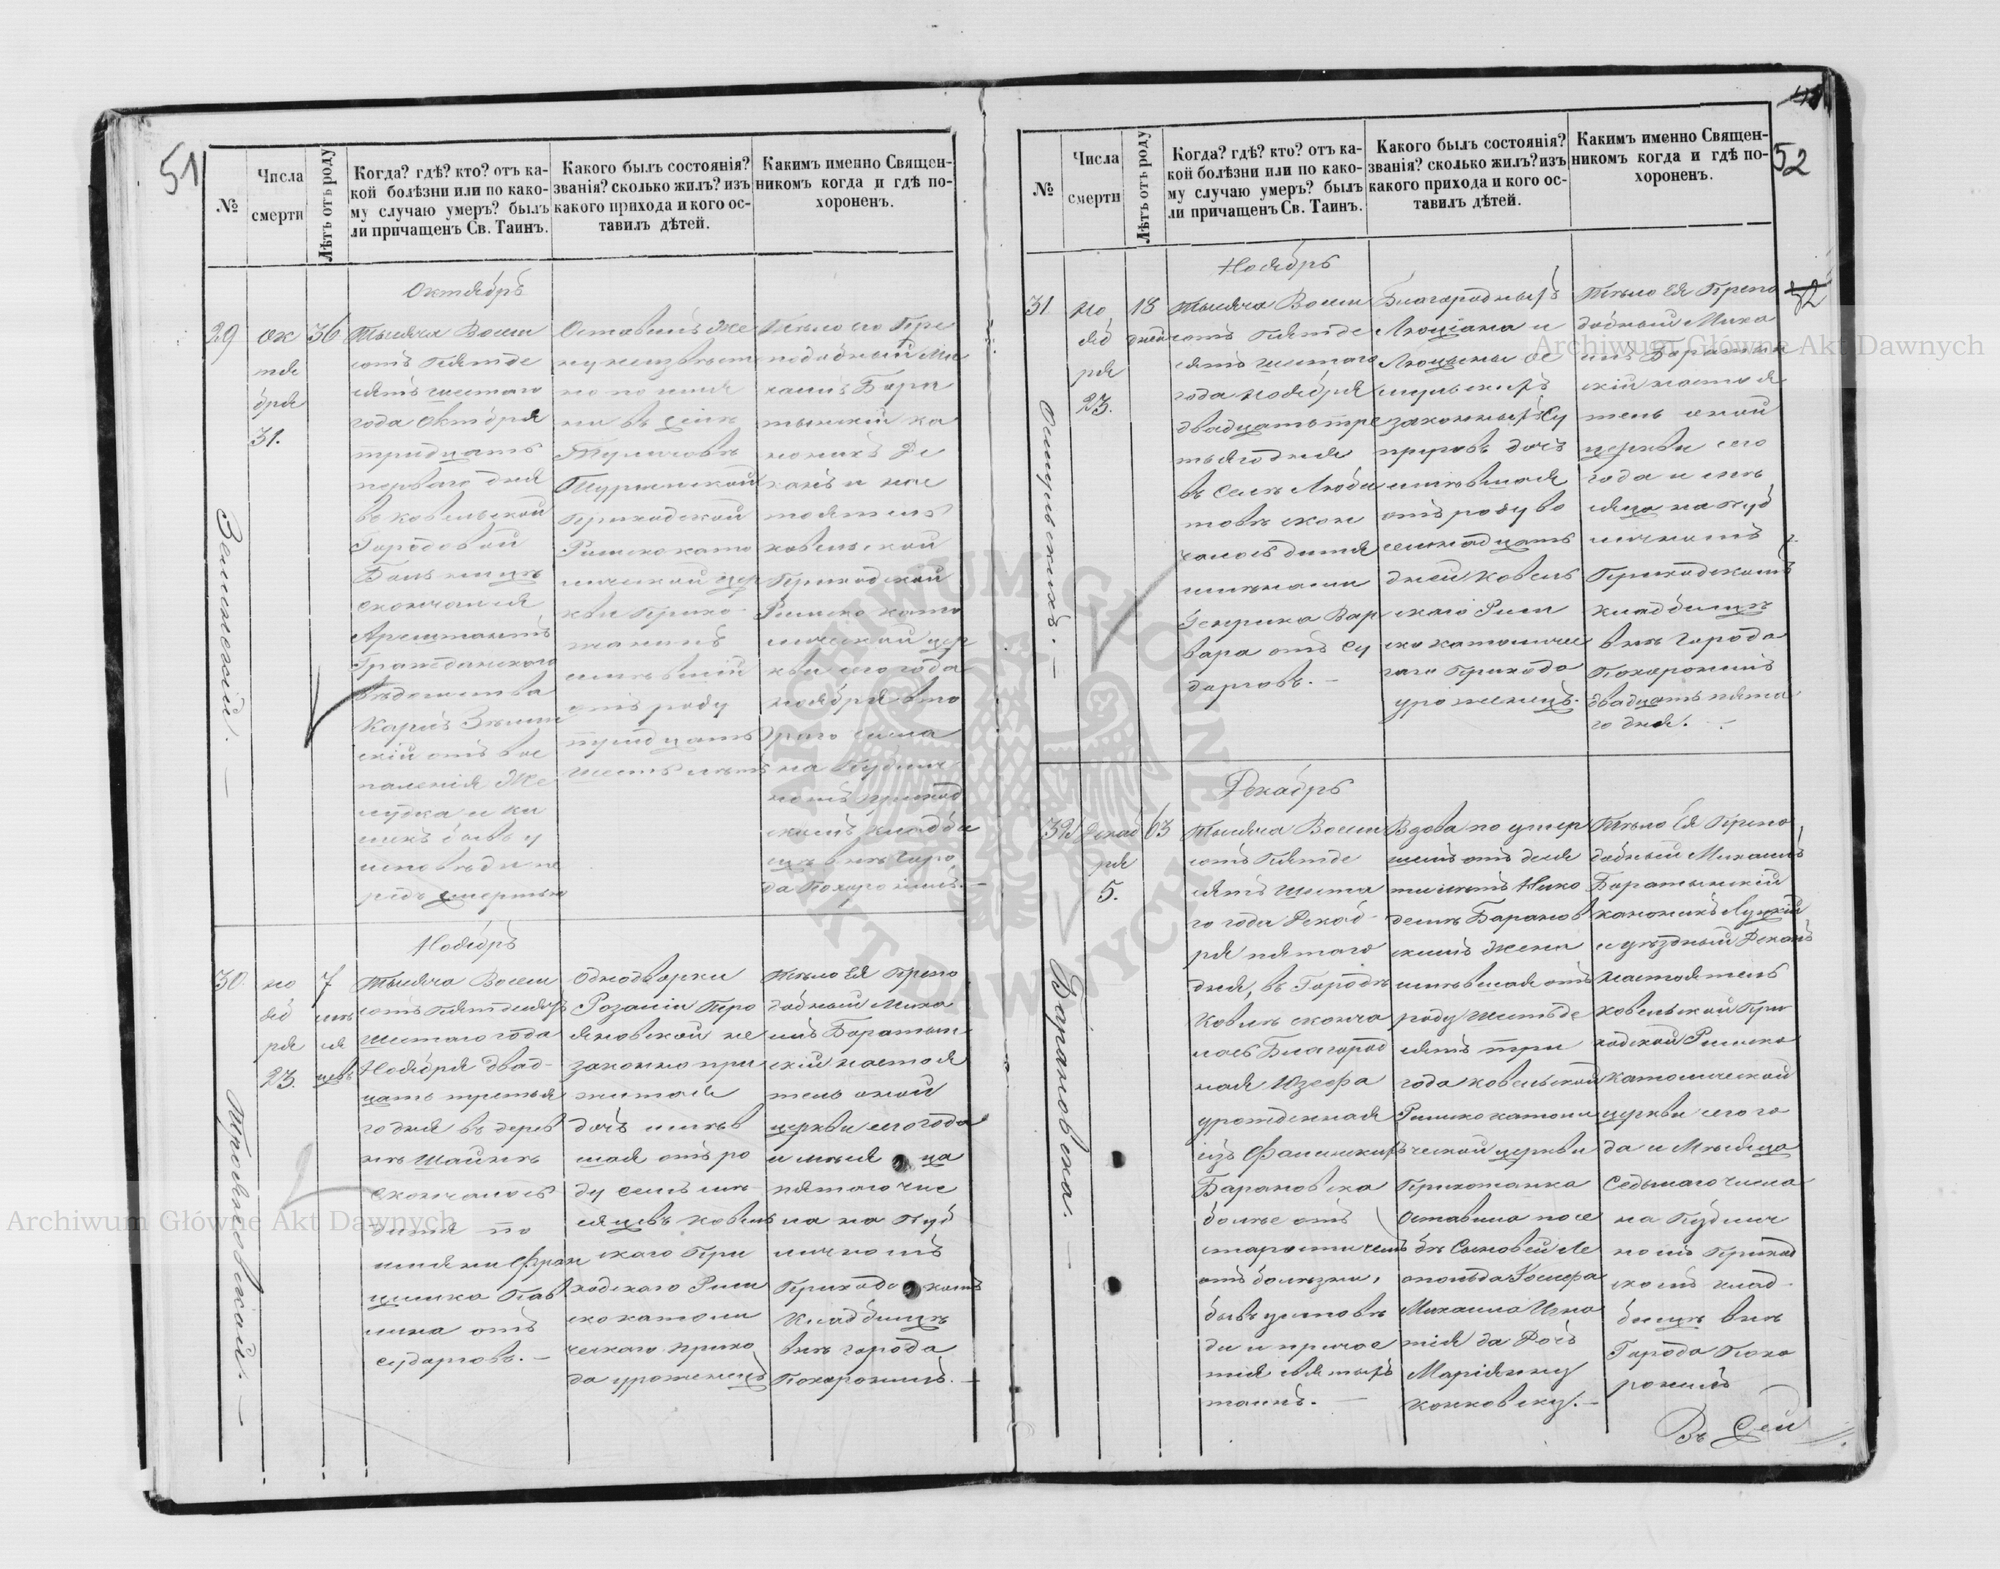 51
№
Числа
смерти
Лѣтъ отъ роду
Когда? гдѣ? кто? отъ ка-
кой болѣзни или по како-
му случаю умеръ? былъ
ли причащенъ Св. Таинъ.
Какого былъ состоянія?
званія? сколько жилъ? изъ
какого прихода и кого ос-
тавилъ дѣтей.
Какимъ именно Священ-
никомъ когда и гдѣ по-
хороненъ.
Октябрь
29
ок
тя
бря
31.
36
Тысяча Восем
сотъ Пятьде
сятъ шестого
года Октября
тридцать
перваго дня
въ Ковельской
Городовой
Больницѣ
скончался
Арештантъ
Гражданского
Вѣдомства
скій отъ вос
паленія Же
лудка и ки
шекъ бывъ у
исповѣди пе
редъ смертью
Оставилъ Же
ну неизвѣст
но по имя
Приходской
Римскокато
лической цер
кви Прихо-
жанинъ
имѣвшій
отъ роду
тридцать
шесть лѣтъ
Тѣло его Пре
подобный Ми
хаилъ Бара
тынскій ка
моникъ Де
канъ и нас
тоятель
Ковельской
Приходской
Римско като
лической цер
кви сего года
ноября вто
рого числа
на Публич
номъ приход
скомъ кладби
щѣ внѣ горо
да Похоронилъ.—
Ноябрь
30
но
яб
ря
23.
7
мѣ
ся
цев
Тысяча Восем
сотъ Пятдесятъ
Шестаго года
Ноября двад-
цать третья
го дня въ дерев
нѣ
скончалось
дитя по
имяни Фран
цишка Пав
лина отъ
сударговъ.—
Однодворки
Розаліи Тро
яновской не
законно при
житая
дочь имѣв
шая отъ ро
ду семь мѣ
сяцевъ Ковель
скаго При
ходскаго Рим
скокатоли
ческаго прихо
да уроженецъ
Тѣло Ея Препо
добный Миха
илъ Баратын
скій настоя
тель оной
церкви сего года
и мѣсяца
пятаго чис
ла на Пуб
личномъ
Приходскомъ
Кладбищѣ
внѣ города
Похоронилъ.—
52
№
Числа
смерти
Лѣтъ отъ роду
Когда? гдѣ? кто? отъ ка-
кой болѣзни или по како-
му случаю умеръ? былъ
ли причащенъ Св. Таинъ.
Какого былъ состоянія?
званія? сколько жилъ? изъ
какого прихода и кого ос-
тавилъ дѣтей.
Какимъ именно Священ-
никомъ когда и гдѣ по-
хороненъ.
Ноябрь
31
но
яб
ря
23.
18
дней
Тысяча Восем
сотъ Пятде
сятъ шестаго
года ноября
двадцать тре
тьяго дня
въ Селѣ Люби
товѣ скон
чалось дитя
имѣнами
Генрика Вар
вара отъ су
дорговъ.—
Благородныхъ
Люціана и
законныхъ Су
пруговъ дочь
имѣвшая
отъ роду во
семнадцать
дней Ковель
скаго Рим
ско католичес
каго Прихода
уроженецъ.
Тѣло Ея Препо
добный Миха
илъ Баратын
скій настоя
тель оной
церкви сего
года и мѣ
сяца на пуб
личномъ
Приходскомъ
кладбищѣ
внѣ города
Похоронилъ
двадцать пята
го дня.—
Декабрь
32
декаб
ря
5.
63
Тысяча Восем
сотъ Пятде
сятъ шеста
го года Декаб-
ря пятаго
дня, въ Городѣ
Ковлѣ сконча
лась Благород
ная Юзефа
урожденная
Барановска
болѣе отъ
старости чемъ
отъ болѣзни,
бывъ у исповѣ
ди и причас
тія святыхъ
таинъ.—
Вдова по умер
шемъ отъ деся
ти лѣтъ Нико
демѣ Баранов
скимъ жена
имѣвшая отъ
роду шестьде
сятъ три
года Ковельской
Римскокатоли
ческой церкви
Прихожанка
Оставила по се
бѣ Сыновей Ле
опольда Іосифа
Михаила Игна
тія да Дочь
Маріянну
Тѣло Ея Препо
добный Михаилъ
Баратынскій
каноникъ Луцкій
и уѣздный Деканъ
настоятель
Ковельской При
ходской Римско
католической
церкви сего го
да и Мѣсяца
Седьмаго числа
на Публич
номъ Приход
скомъ клад-
бищѣ внѣ
Города Похо
ронилъ
Барановска.—
Archiwum Główne Akt Dawnych
Archiwum Główne Akt Dawnych
ARCHIWUM GŁÓWNE AKT DAWNYCH